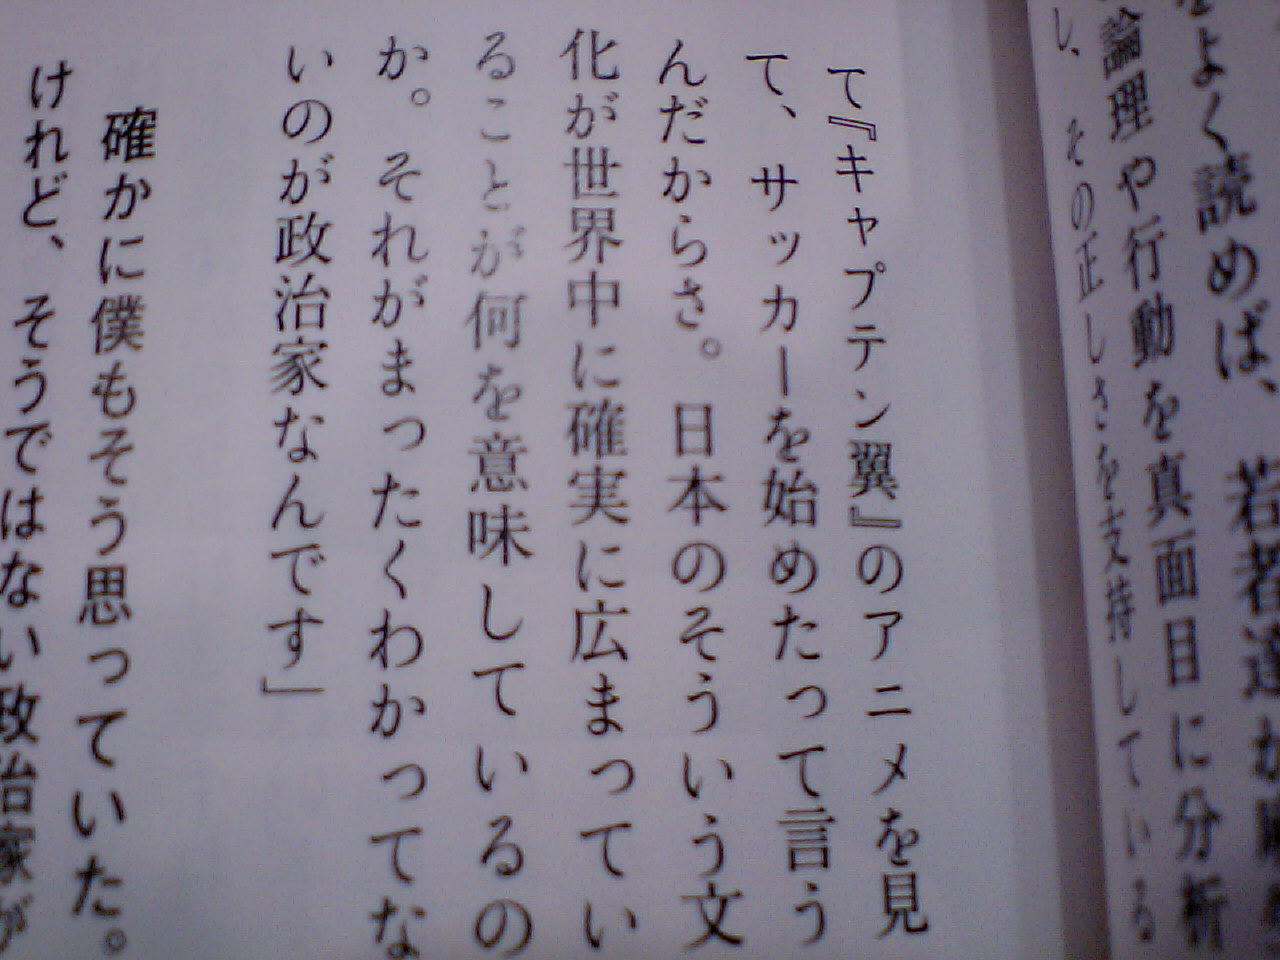 をよく読めば、若者達が
論理や行動を真面目に分析
し、その正しさを支持している
て『キャプテン翼』のアニメを見
て、サッカーを始めたって言う
んだからさ。日本のそういう文
化が世界中に確実に広まってい
ることが何を意味しているの
か。それがまったくわかってな
いのが政治家なんです」
確かに僕もそう思っていた。
けれど、そうではない政治家が